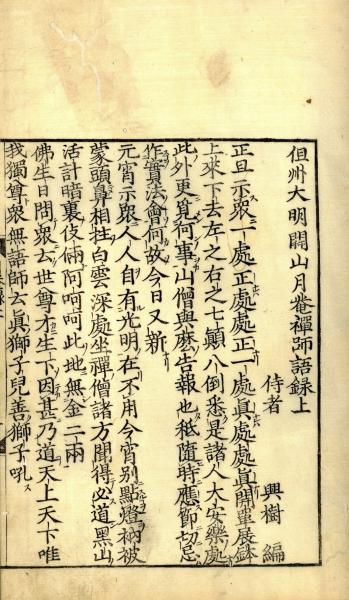 但州大明開山月菴禪師語錄上
侍者 興樹 編
正旦示眾一處正處處正一處眞處處眞開單展鉢
上來下去左之右之七顛八倒悉是諸人大安樂處
此外更覓何事山僧與麼告報也秪隨時應節切忌
作實法會何故今日又新
元宵示眾人人自有光明在不用今宵別點燈衲被
蒙頭鼻相拄白雲深處坐禪僧諸方聞得必道黑山
活計暗裏伎倆阿呵呵此地無金二兩
佛生日問眾云世尊才生下因甚乃道天上天下唯
我獨尊眾無語師云眞獅子兒善獅子吼